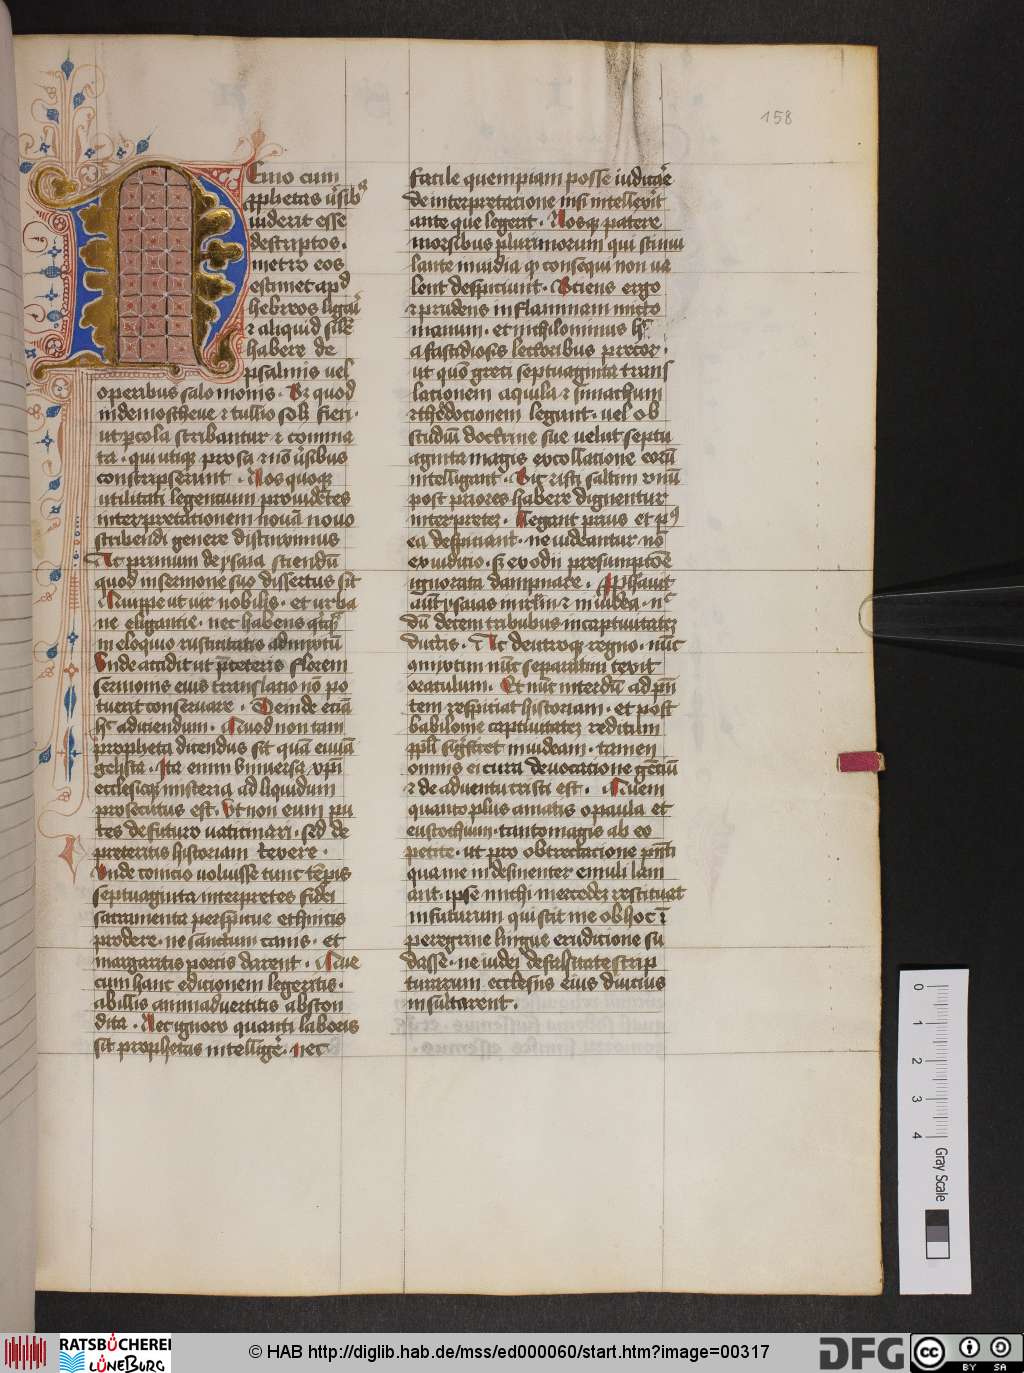 158
Emo cum
pphetas v̉sibꝰ
viderit esse
descriptos ·
metro eos
estimet apd
hebreos ligari
⁊ aliquid sile
habere de
psalmis vel
operibus salomonis · Sꝫ quod
in demosthene ⁊ tullio solꝫ fieri ·
ut p cola scribantur ⁊ comma
ta · qui utiqꝫ prosa ⁊ nō v̉sibus
conscripserunt · Nos quoqꝫ
utilitati legentium providētes
interpretationem nouā nouo
scribendi genere distinximus
Ac primum de ysaia sciendū
quod in sermone suo dissertus sit
Quippe ut vir nobilis · et urba
ne eligantie · nec habens q̇cq̇
in eloquio rusticitatis admixtū
Vnde accidit ut p̄ceteris florem
sermonis eius translatio nō po
tuerit conservare · Deinde eciā
hͦ adiciendum · Quod non tam
propheta dicendus sit quā ewā
gelista · Ita enim vniversa xp̄i
ecclesieqꝫ misteria ad liquidum
prosecutus est · Vt non eum pu
tes de futuro vaticinari · sed de
preteritis historiam texere ·
Vnde conicio voluisse tunc tēpis
septuaginta interpretes fidei
sacramenta perspicue ethnicis
prodere · ne sanctum canis · et
margaritis porcis darent · Que
cum hanc edicionem legeritis ·
ab illis animadvertitis abscon
dita · Nec ignoro quanti laboris
sit prophetas intelligẻ · nec
facile quempiam posse iudicare
de interpretacione nisi intellexit
ante que legerit · Nosqꝫ patere
morsibus plurimorum qui stimu
lante invidia qͥ consequi non va
lent despiciunt · Sciens ergo
⁊ prudens in flammam mitto
manum · et nichilominus hͦ
a fastidiosis lectoribus precor ·
ut quō greci septuaginta trans
lacionem aquila ⁊ simachum
⁊ thēdocionem legunt · vel ob
studiū doctrine sue velut septu
aginta magis ex collacione eorū
intelligant · Sic ⁊ isti saltim vnū
post priores habere dignentur
interpretē · Legant prius et pꝰ
ea despiciant · ne videantur nō
ex iudicio · sꝫ ex odii presumpcōe
ignorata dampnare · Pphauit
aūt ysaias in irlm̄ ⁊ in iudea · nͨ
dū decem tribubus in captivitatē
ductis · Ac de utroqꝫ regno · nūc
cōmixtim nūc separatim texuit
oraculum · Et nūc interdū ad pn̄
tem respiciat historiam · et post
babilonie captivitatē reditum
ppl̄i significet in iudeam · tamen
omnis ei cura de vocatione gēciū
⁊ de adventu cristi est · Quem
quanto plus amatis o paula et
eustochium · tanto magis ab eo
petite · ut pro obtrectacione pn̄ti
qua me indesinenter emuli lani
ant · ipse michi mercedē restituat
in futurum qui scit me ob hoc ī
peregrine lingue erudicione su
dasse · ne iudei de falsitate scrip
turarum ecclesiis eius diucius
insultarent ·
0 1 2 3 4
Gray Scale
RATSBÜCHEREI
LÜNEBURG
© HAB http://diglib.hab.de/mss/ed000060/start.htm?image=00317
DFG
cc
BY SA